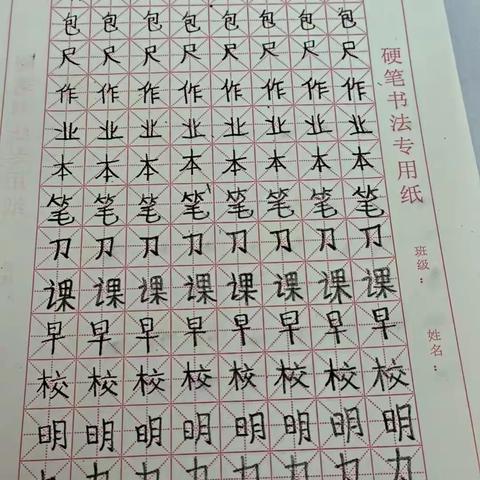 包包包包包包包包
尺尺尺尺尺尺尺尺
作作作作作作作作
业业业业业业业业
本本本本本本本本
笔笔笔笔笔笔笔笔
刀刀刀刀刀刀刀刀
课课课课课课课课
早早早早早早早早
校校校校校校校校
明明明明明明明明
力力力力力力力力
硬笔书法专用纸
班级：
姓名：